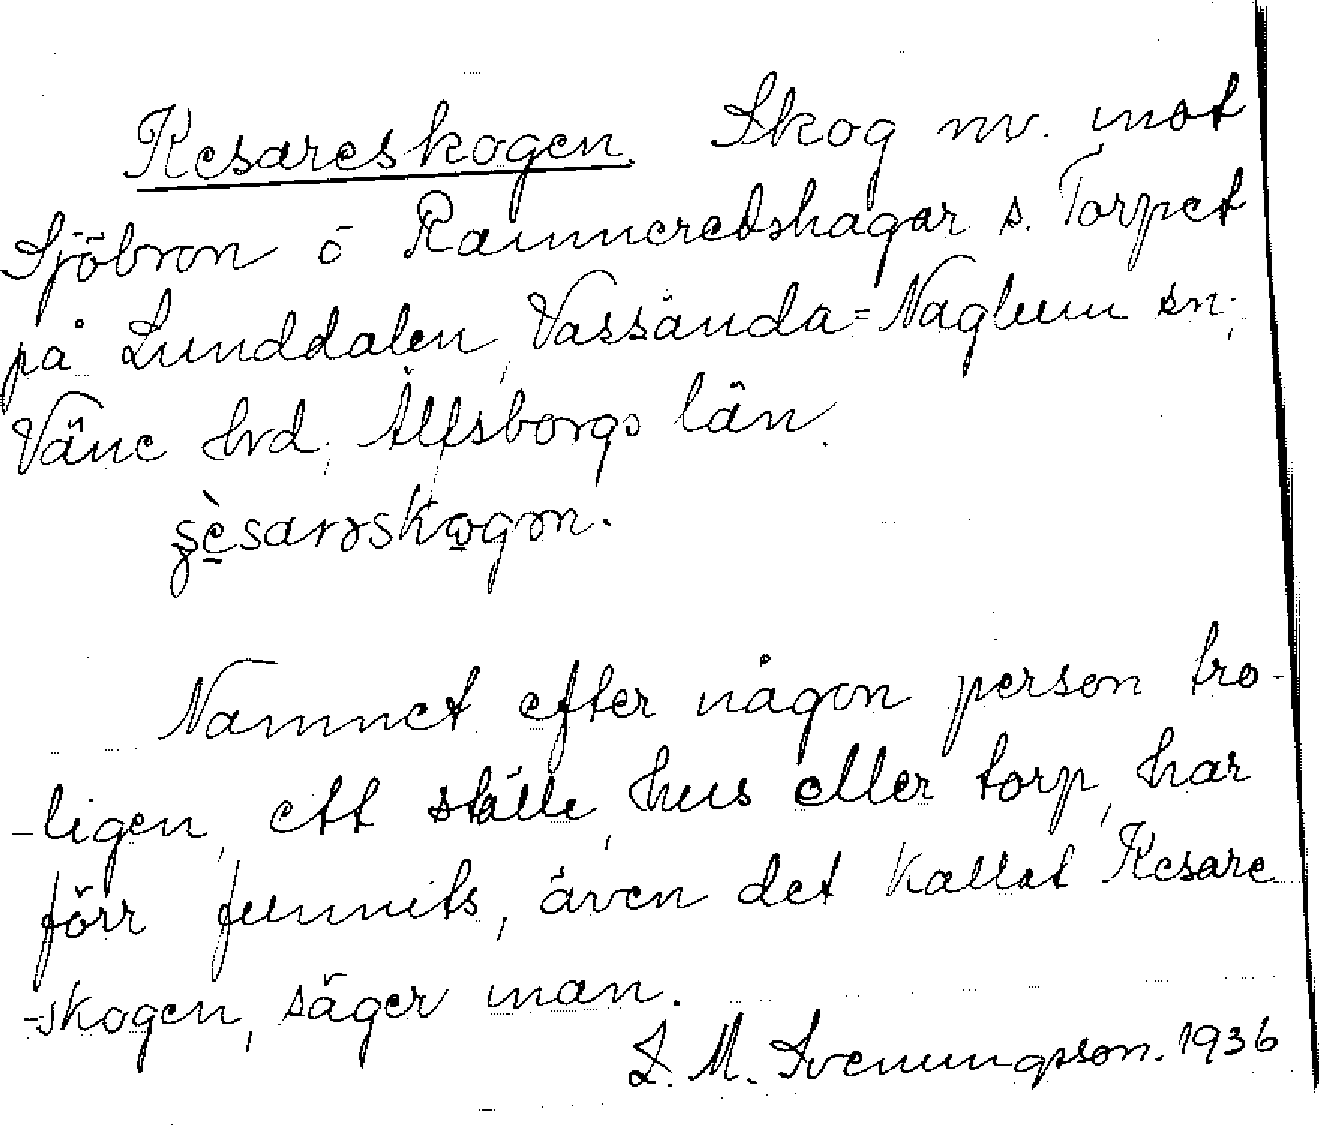 Kesareskogen. Skog nv. mot
Sjöbron ö Ranneredshagar s. Torpet
på Lunddalen, Vassända=Naglum sn;
Väne hrd; Älfsborgs län.
Namnet efter någon person tro-
-ligen, ett ställe, hus eller torp, har
förr funnits, även det kallat Kesare
-skogen, säger man.
L. M. Svenungsson. 1936